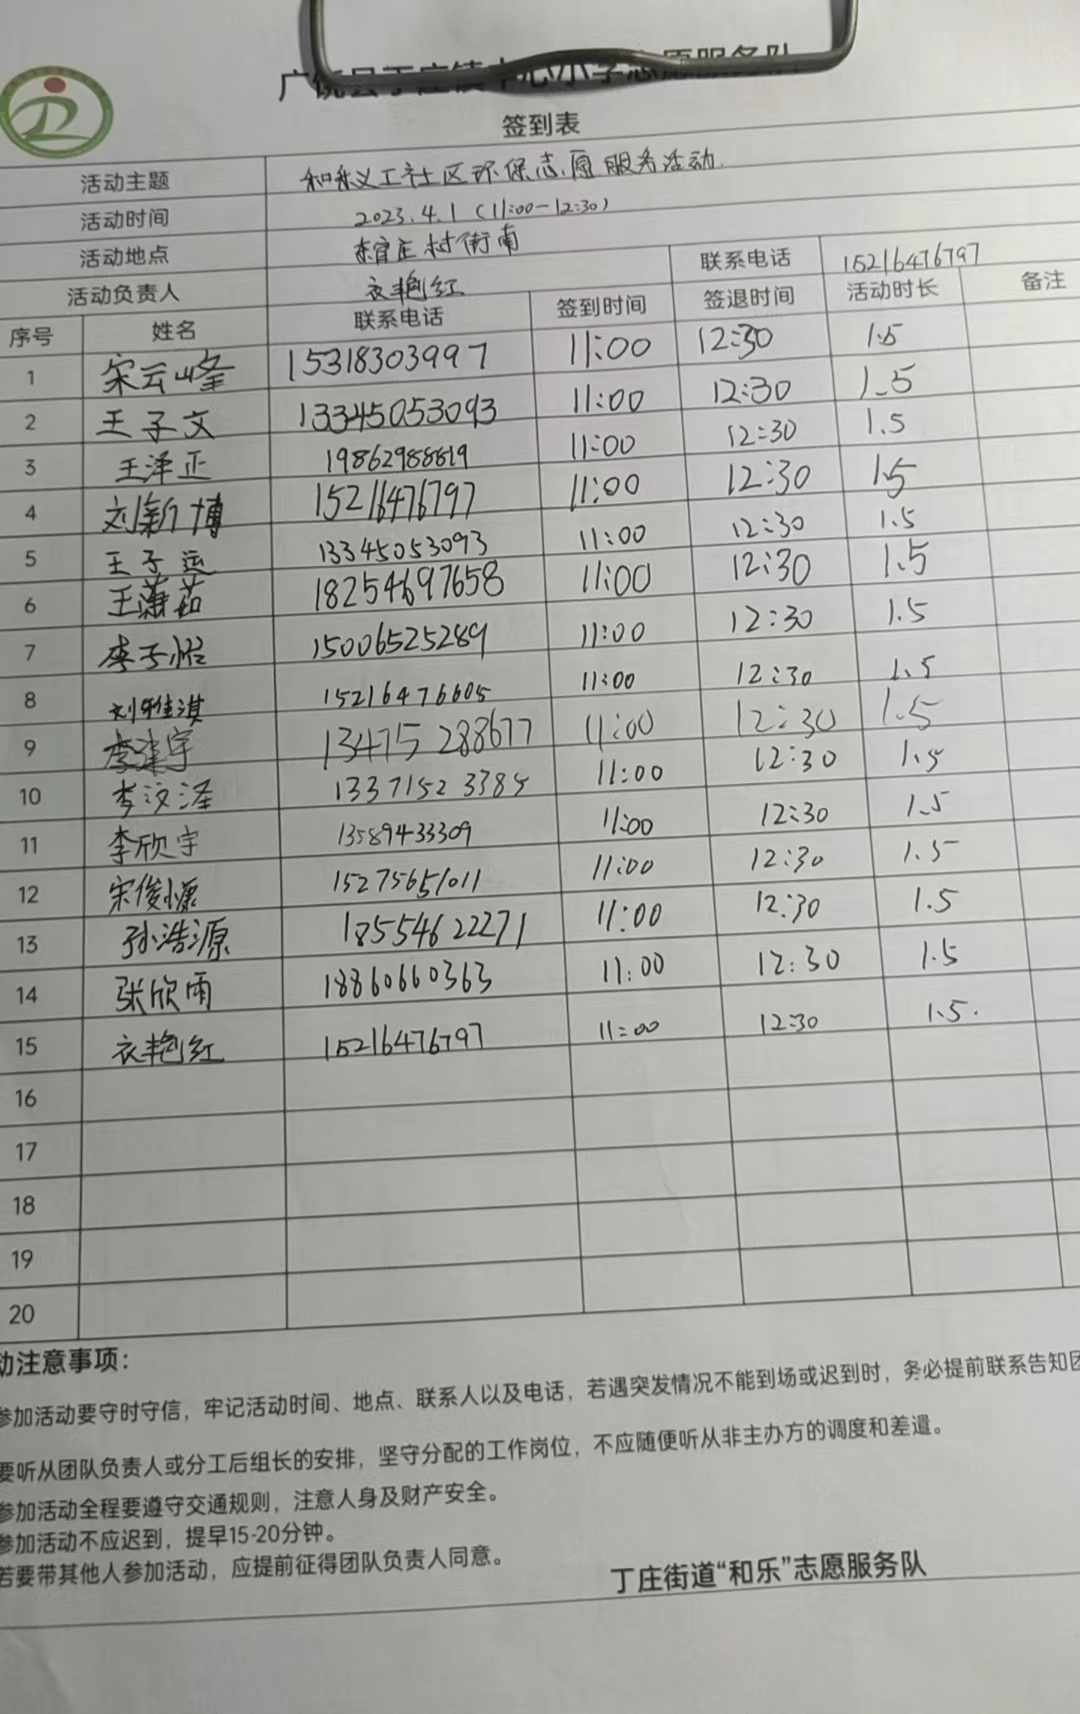 广饶县丁庄镇中心小学志愿服务队
签到表
活动主题 和利义工社区环保志愿服务活动.
活动时间 2023.4.1 (11:00-12:30)
活动地点 村街南
活动负责人 衣艳红 联系电话 15216476797
序号 姓名 联系电话 签到时间 签退时间 活动时长 备注
1 宋云峰 15318303997 11:00 12:30 1.5
2 王子文 13345053093 11:00 12:30 1.5
3 王泽正 19862988819 11:00 12:30 1.5
4 刘新博 15216476797 11:00 12:30 1.5
5 王子运 13345053093 11:00 12:30 1.5
6 王潇茹 18254697658 11:00 12:30 1.5
7 李子怡 15006525289 11:00 12:30 1.5
8 刘雅淇 15216476605 11:00 12:30 1.5
9 李津宇 13475288677 11:00 12:30 1.5
10 李汶泽 13371523385 11:00 12:30 1.5
11 李欣宇 13589433309 11:00 12:30 1.5
12 宋俊慷 15275651011 11:00 12:30 1.5
13 孙浩源 18554622271 11:00 12:30 1.5
14 张欣雨 18860660363 11:00 12:30 1.5
15 衣艳红 15216476797 11:00 12:30 1.5.
16
17
18
19
20
动注意事项：
参加活动要守时守信，牢记活动时间、地点、联系人以及电话，若遇突发情况不能到场或迟到时，务必提前联系告知团
要听从团队负责人或分工后组长的安排，坚守分配的工作岗位，不应随便听从非主办方的调度和差遣。
参加活动全程要遵守交通规则，注意人身及财产安全。
参加活动不应迟到，提早15-20分钟。
若要带其他人参加活动，应提前征得团队负责人同意。
丁庄街道“和乐”志愿服务队